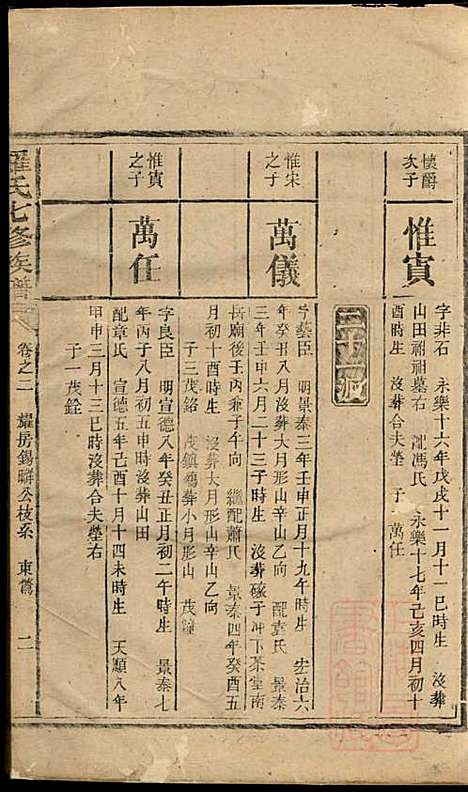 懷爵
次子
惟寅
字非石 永樂十六年戊戌十一月十一巳時生 沒葬
山田祖祖墓右 配馮氏 永樂十七年己亥四月初十
酉時生 沒葬合夫塋 子一 萬任
二十五派
惟宋
之子
萬儀
字藝臣 明景泰三年壬申正月十九午時生 宏治六
年癸丑八月沒葬大月形山辛山乙向 配袁氏 景泰
三年壬申六月二十三子時生 沒葬磜子冲下茶堂南
岳廟後壬丙兼子午向 繼配蕭氏 景泰四年癸酉五
月初十酉時生 沒葬大月形山辛山乙向
子三茂銘 茂鎮鴉葬小月形山 茂鐘
惟寅
之子
萬任
字良臣 明宣德八年癸丑正月初二午時生 景泰七
年丙子八月初五申時沒葬山田
配章氏 宣德五年己酉十月十四未時生 天順八年
甲申三月十三巳時沒葬合夫塋右
子一茂銓
羅氏七修族譜
卷之二 耀房錫疇公枝系 東舊 二